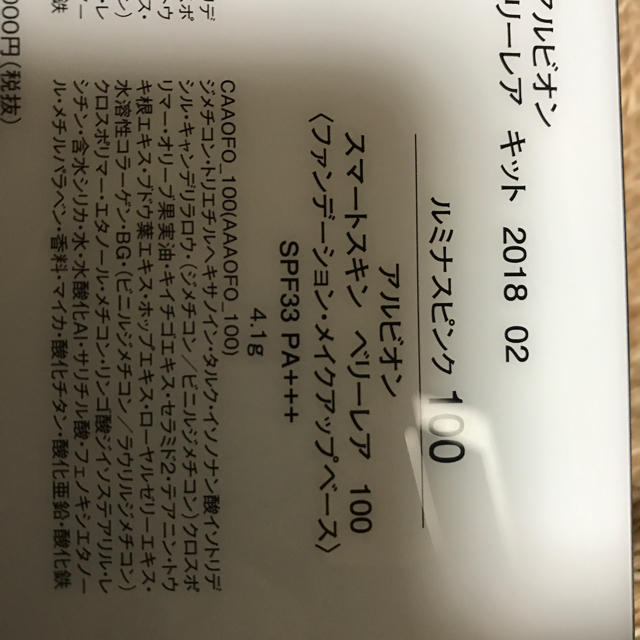 アルビオン
リーレア キット 2018 02
ルミナスピンク 100
アルビオン
スマートスキン ベリーレア 100
〈ファンデーション・メイクアップベース〉
SPF33 PA+++
4.1g
CAAOFO_100(AAAOFO_100)
ジメチコン・トリエチルヘキサノイン・タルク・イソノナン酸イソトリデ
シル・キャンデリラロウ・(ジメチコン/ビニルジメチコン)クロスポ
リマー・オリーブ果実油・キイチゴエキス・セラミド2・テアニン・トウ
キ根エキス・ブドウ葉エキス・ホップエキス・ローヤルゼリーエキス・
水溶性コラーゲン・BG・(ビニルジメチコン/ラウリルジメチコン)
クロスポリマー・エタノール・メチコン・リンゴ酸ジイソステアリル・レ
シチン・含水シリカ・水・水酸化Al・サリチル酸・フェノキシエタノー
ル・メチルパラベン・香料・マイカ・酸化チタン・酸化亜鉛・酸化鉄
000円(税抜)